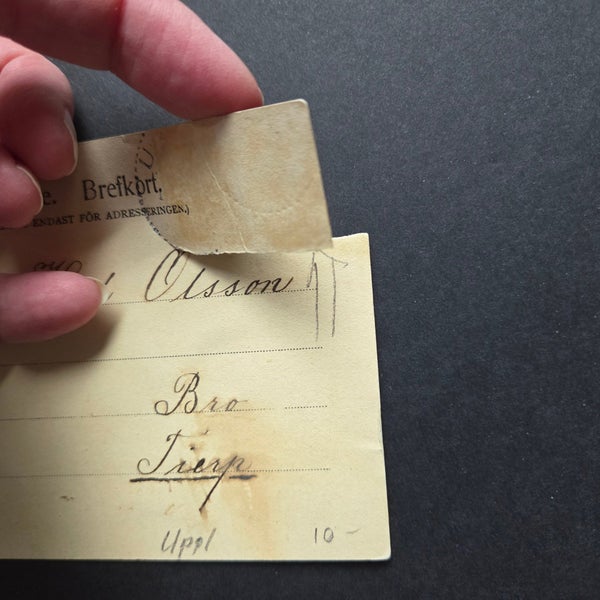 e. Brefkort.
ENDAST FÖR ADRESSERINGEN.)
Olsson
Bro
Tierp
Uppl 10-